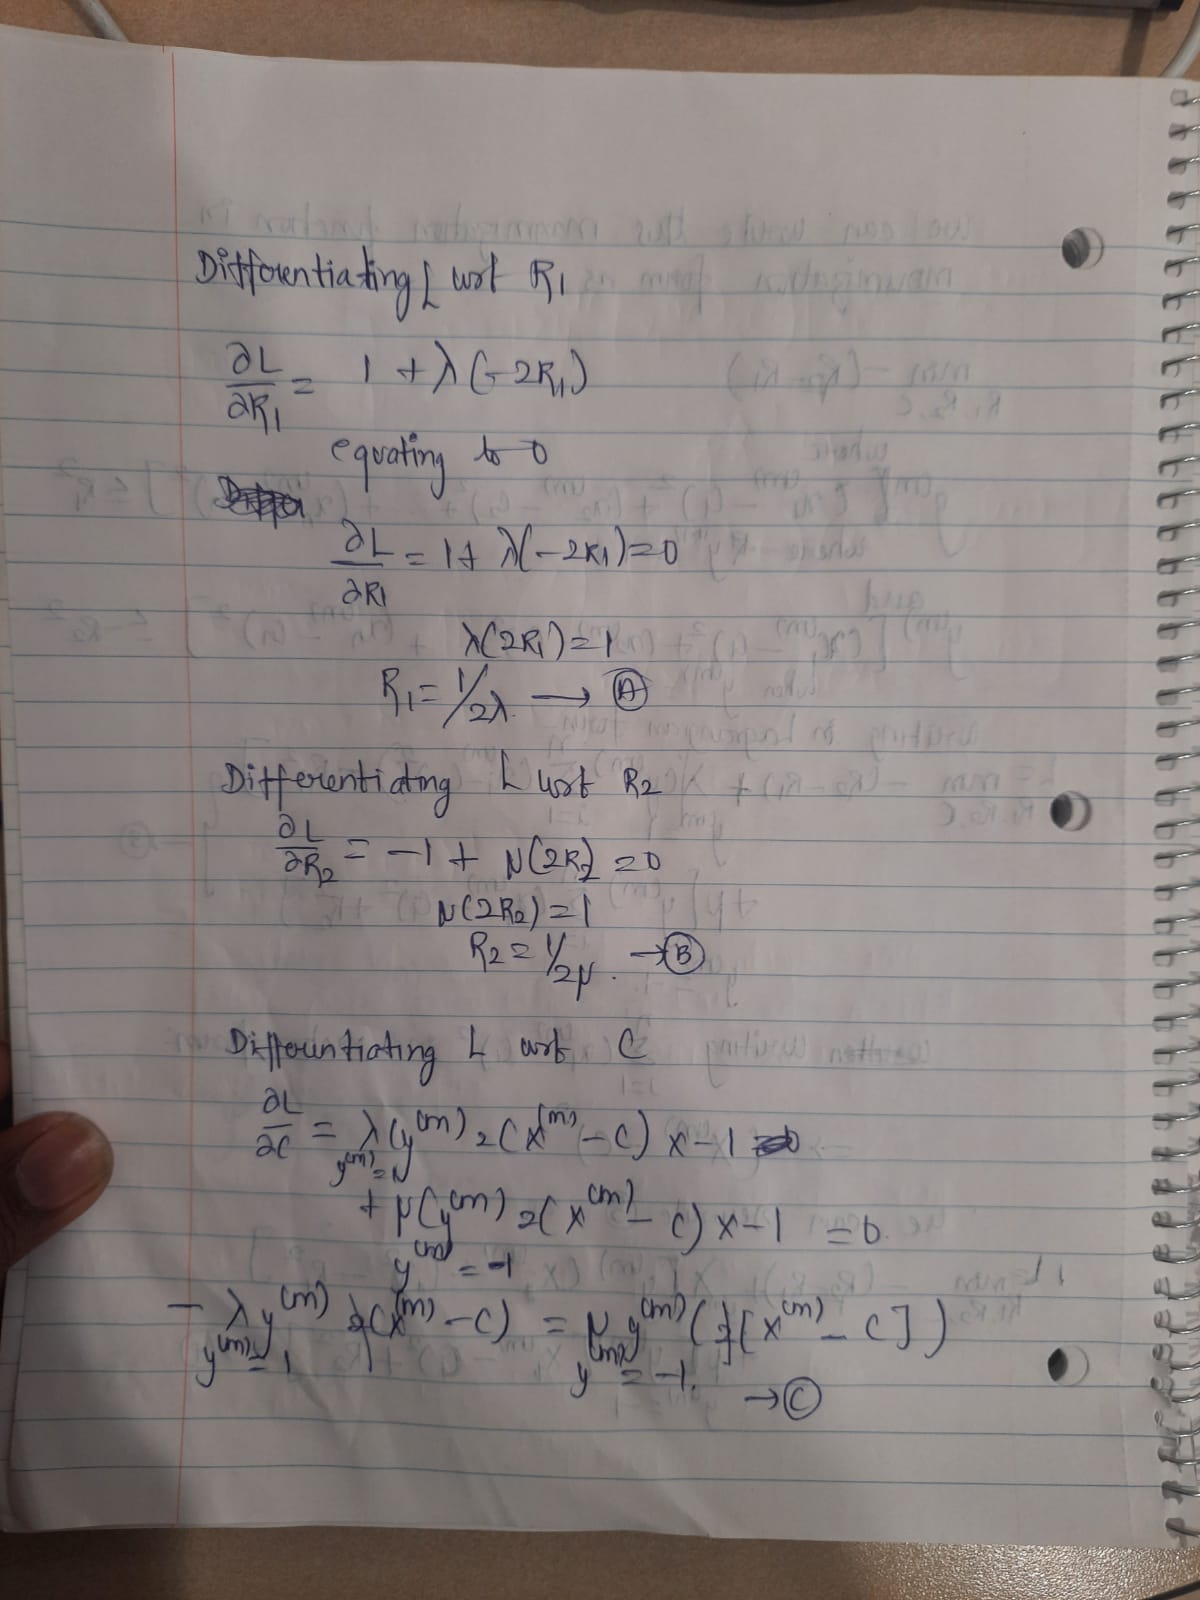 Differentiating L wrt R1
∂L/∂R1 = 1 + λ(-2R1)
equating to 0
∂L/∂R1 = 1 + λ(-2R1) = 0
λ(2R1) = 1
R1 = 1/2λ. → Ⓐ
Differentiating L wrt R2
∂L/∂R2 = -1 + μ(2R2) = 0
μ(2R2) = 1
R2 = 1/2μ. → Ⓑ
Differentiating L wrt C
∂L/∂C = λ(y^(m)) 2(x^(m) - C) x -1
y^(m) =
+ μ(y^(m)) 2(x^(m) - C) x -1 = 0.
y^(m) = -1
- λ y^(m) 2(x^(m) - C) = μ y^(m) (2[x^(m) - C])
y^(m) = 1 y^(m) = -1.
→ Ⓒ